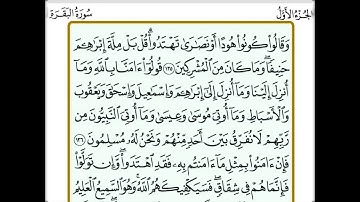 الجُزْءُ الأَوَّلُ سُورَةُ البَقَرَةِ
وَقَالُوا۟ كُونُوا۟ هُودًا أَوْ نَصَٰرَىٰ تَهْتَدُوا۟ ۗ قُلْ بَلْ مِلَّةَ إِبْرَٰهِـۧمَ
حَنِيفًا ۖ وَمَا كَانَ مِنَ ٱلْمُشْرِكِينَ ١٣٥ قُولُوٓا۟ ءَامَنَّا بِٱللَّهِ وَمَآ
أُنزِلَ إِلَيْنَا وَمَآ أُنزِلَ إِلَىٰٓ إِبْرَٰهِـۧمَ وَإِسْمَٰعِيلَ وَإِسْحَٰقَ وَيَعْقُوبَ
وَٱلْأَسْبَاطِ وَمَآ أُوتِىَ مُوسَىٰ وَعِيسَىٰ وَمَآ أُوتِىَ ٱلنَّبِيُّونَ مِن
رَّبِّهِمْ لَا نُفَرِّقُ بَيْنَ أَحَدٍ مِّنْهُمْ وَنَحْنُ لَهُۥ مُسْلِمُونَ ١٣٦
فَإِنْ ءَامَنُوا۟ بِمِثْلِ مَآ ءَامَنتُم بِهِۦ فَقَدِ ٱهْتَدَوا۟ ۖ وَّإِن تَوَلَّوْا۟
فَإِنَّمَا هُمْ فِى شِقَاقٍ ۖ فَسَيَكْفِيكَهُمُ ٱللَّهُ ۚ وَهُوَ ٱلسَّمِيعُ ٱلْعَلِيمُ